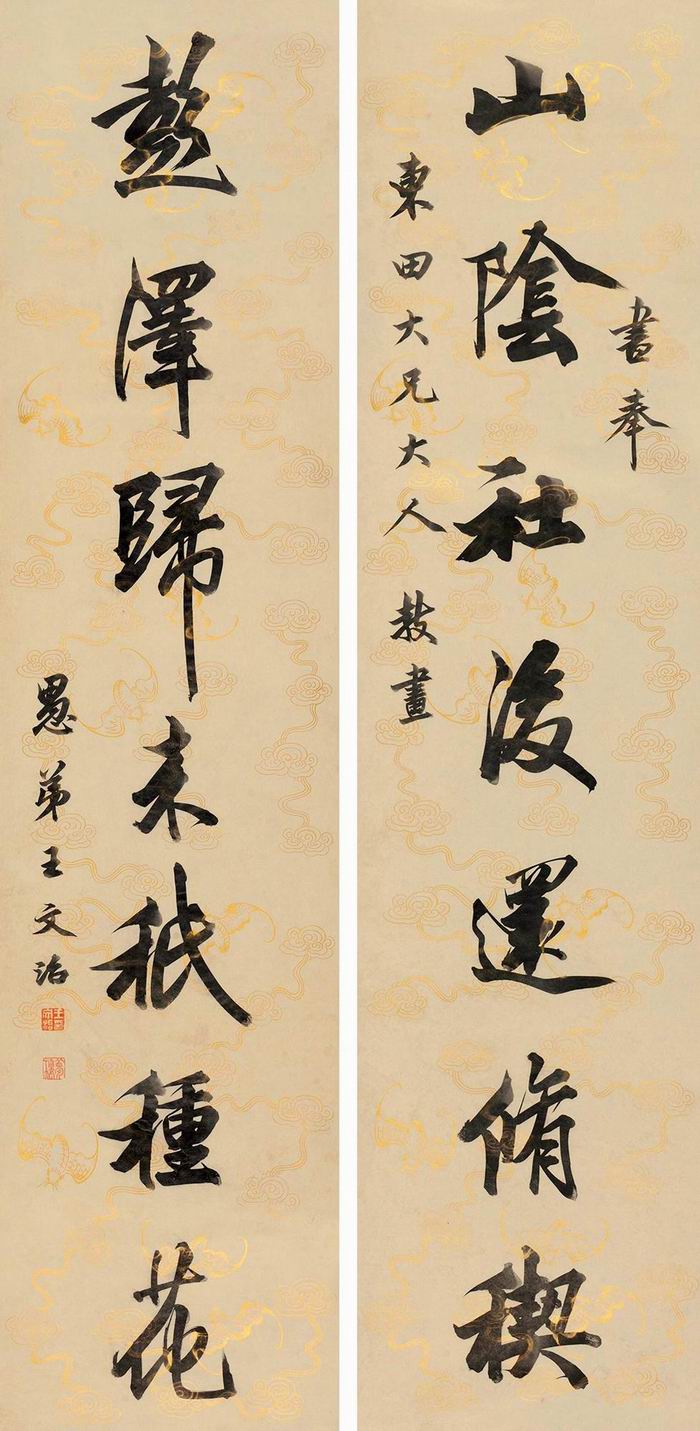 書奉
山陰社後還脩稧
東田大兄大人 教畫
彭澤歸来秖種花
愚弟王文治